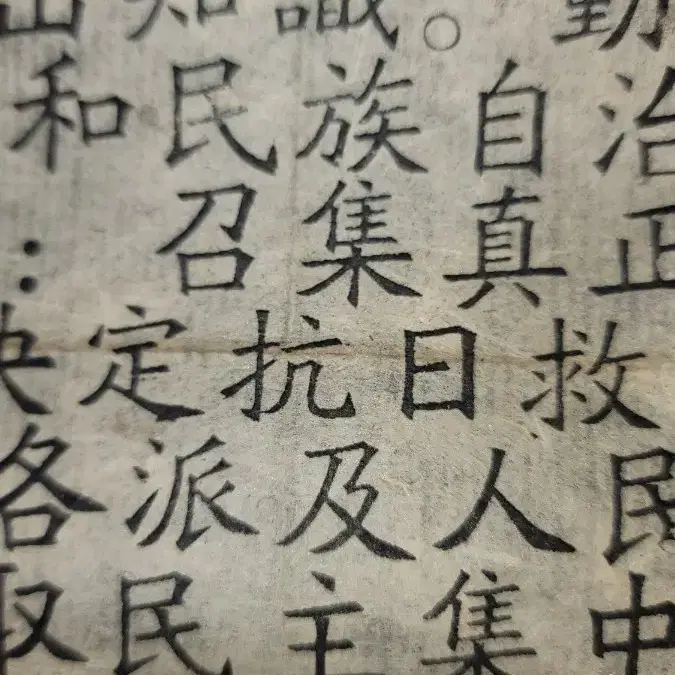 知識。勤
和民族自治
：召集真正
决定抗日救
各派及人民
取民主集中